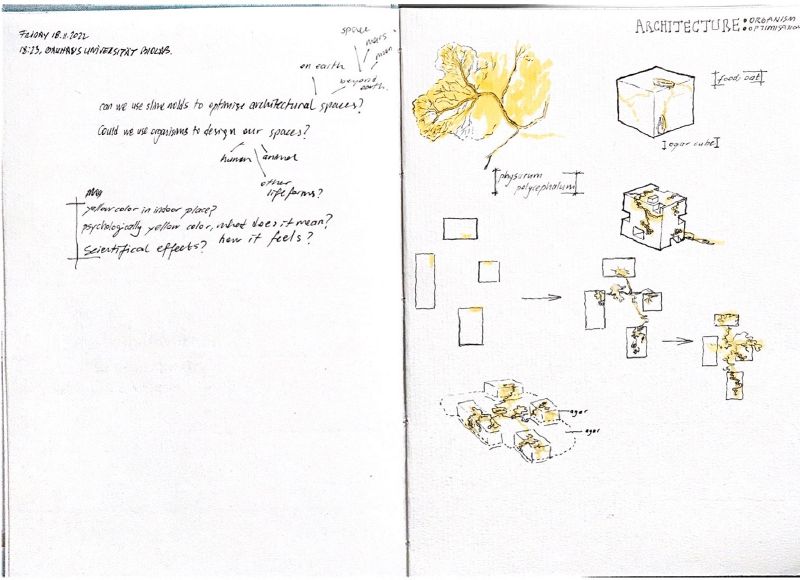 FRIDAY 18.11.2022
18:23, BAUHAUS UNIVERSITÄT
space
mars
moon
on earth
beyond earth.
can we use slime molds to optimize architectural spaces?
Could we use organisms to design our spaces?
human
animal
other
lifeforms?
yellow color in indoor place?
psychologically yellow color, what does it mean?
Scientifical effects? how it feels?
ARCHITECTURE
• ORGANISM
• OPTIMISATION
food: oat
agar cube
physarum
polycephalum
agar
agar